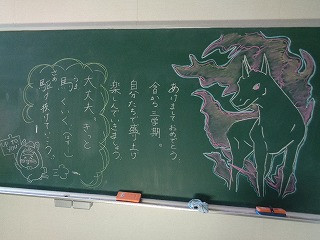 あけましておめでとう
今日から三学期。
自分たちで盛り上げ
楽しんでいきましょう。
大丈夫、きっと
馬くいく（はず）
さあ
駆け抜けていこう、